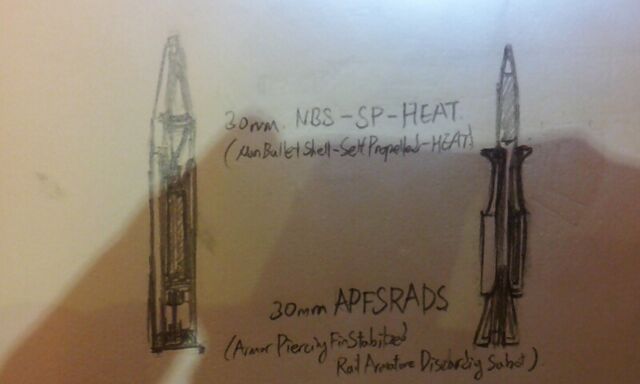 30mm. NBS-SP-HEAT.
(NonBulletShell-Self Propelled-HEAT)
30mm APFSRADS
(Armor Piercing Fin Stabilized
Rail Armature Discarding Sabot)